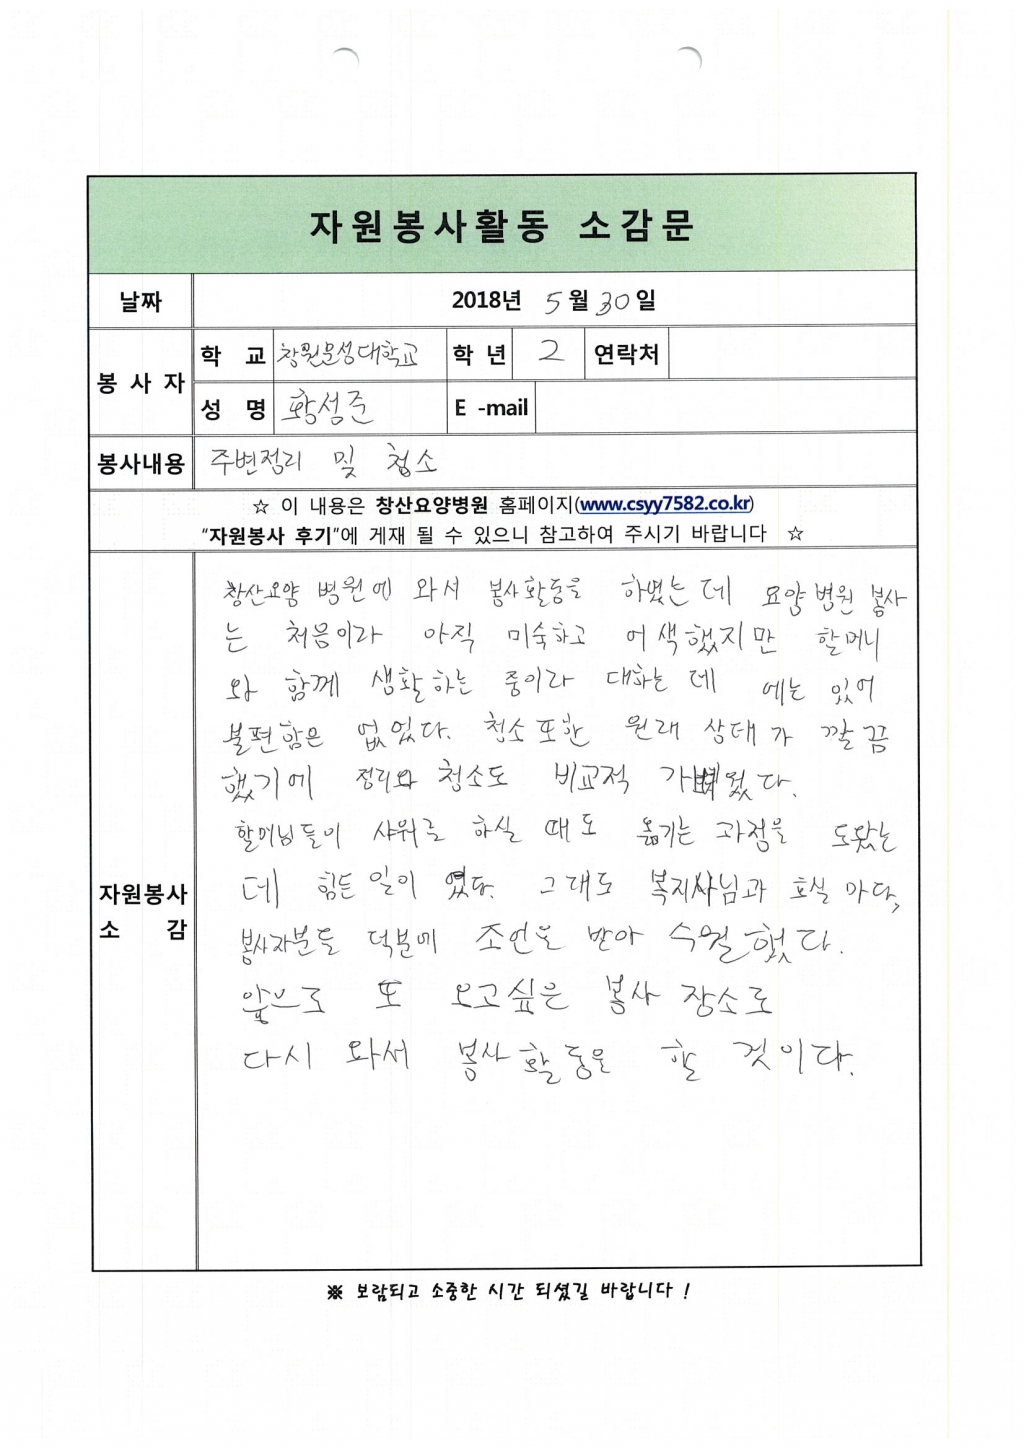 자원봉사활동 소감문
날짜 2018년 5월 30일
봉사자 학 교 창원문성대학교 학년 2 연락처
성 명 황성준 E -mail
봉사내용 주변정리 및 청소
☆ 이 내용은 창산요양병원 홈페이지(www.csyy7582.co.kr)
"자원봉사 후기"에 게재 될 수 있으니 참고하여 주시기 바랍니다 ☆
자원봉사 소 감
창산요양 병원에 와서 봉사활동을 하였는데 요양병원 봉사
는 처음이라 아직 미숙하고 어색했지만 할머니
와 함께 생활하는 중이라 대하는데 에는 있어
불편함은 없었다. 청소 또한 원래 상태가 깔끔
했기에 정리와 청소도 비교적 가벼웠다.
할머님들이 샤워를 하실 때도 옮기는 과정을 도왔는
데 힘든일이 였다. 그래도 복지사님과 호실 마다,
봉사자분들 덕분에 조언을 받아 수월했다.
앞으로 또 오고싶은 봉사 장소로
다시 와서 봉사활동을 할 것이다.
※ 보람되고 소중한 시간 되셨길 바랍니다 !